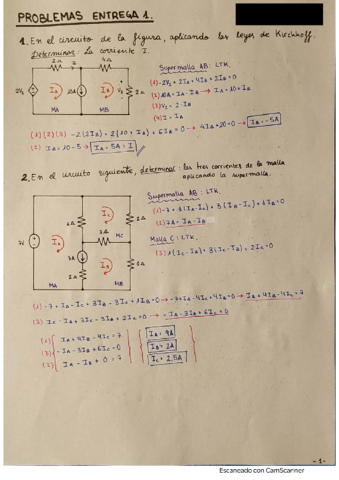 PROBLEMAS ENTREGA 1.
1. En el circuito de la figura, aplicando las leyes de Kirchhoff.
Determinar: La corriente I.
2Ω
I
4Ω
2Vx
IA
10A
IB
Vx
2Ω
MA
MB
Supermalla AB: LTK.
(1) -2Vx + 2IA + 4IB + 2IB = 0
(2) 10A = IA - IB → IA = 10 + IB
(3) Vx = 2·IB
(4) I = IA
(1)(2)(3) -2(2IB) + 2(10 + IB) + 6IB = 0 → 4IB + 20 = 0 → IB = -5A
(2) IA = 10 - 5 → IA = 5A = I
2. En el circuito siguiente, determinar: las tres corrientes de la malla
aplicando la supermalla.
7V
IA
1Ω
IC
2Ω
MC
3Ω
7A
IB
2Ω
1Ω
MA
MB
Supermalla AB: LTK.
(1) -7 + 1(IA - IC) + 3(IB - IC) + 1IB = 0
(2) 7A = IA - IB
Malla C: LTK.
(3) 1(IC - IA) + 3(IC - IB) + 2IC = 0
(1) -7 + IA - IC + 3IB - 3IC + 1IB = 0 → -7 + IA - 4IC + 4IB = 0 → IA + 4IB - 4IC = 7
(3) IC - IA + 3IC - 3IB + 2IC = 0 → -IA - 3IB + 6IC = 0
(1) IA + 4IB - 4IC = 7
(3) -IA - 3IB + 6IC = 0
(2) IA - IB + 0 = 7
IA = 9A
IB = 2A
IC = 2.5A
-1-
Escaneado con CamScanner